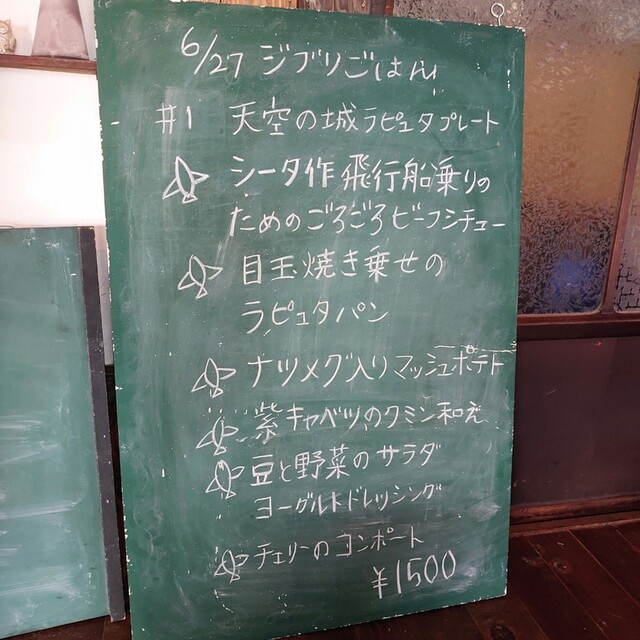 6/27 ジブリごはん
#1 天空の城ラピュタプレート
シータ作 飛行船乗りの
ためのごろごろビーフシチュー
目玉焼き乗せの
ラピュタパン
ナツメグ入りマッシュポテト
紫キャベツのクミン和え
豆と野菜のサラダ
ヨーグルトドレッシング
チェリーのコンポート
¥1500